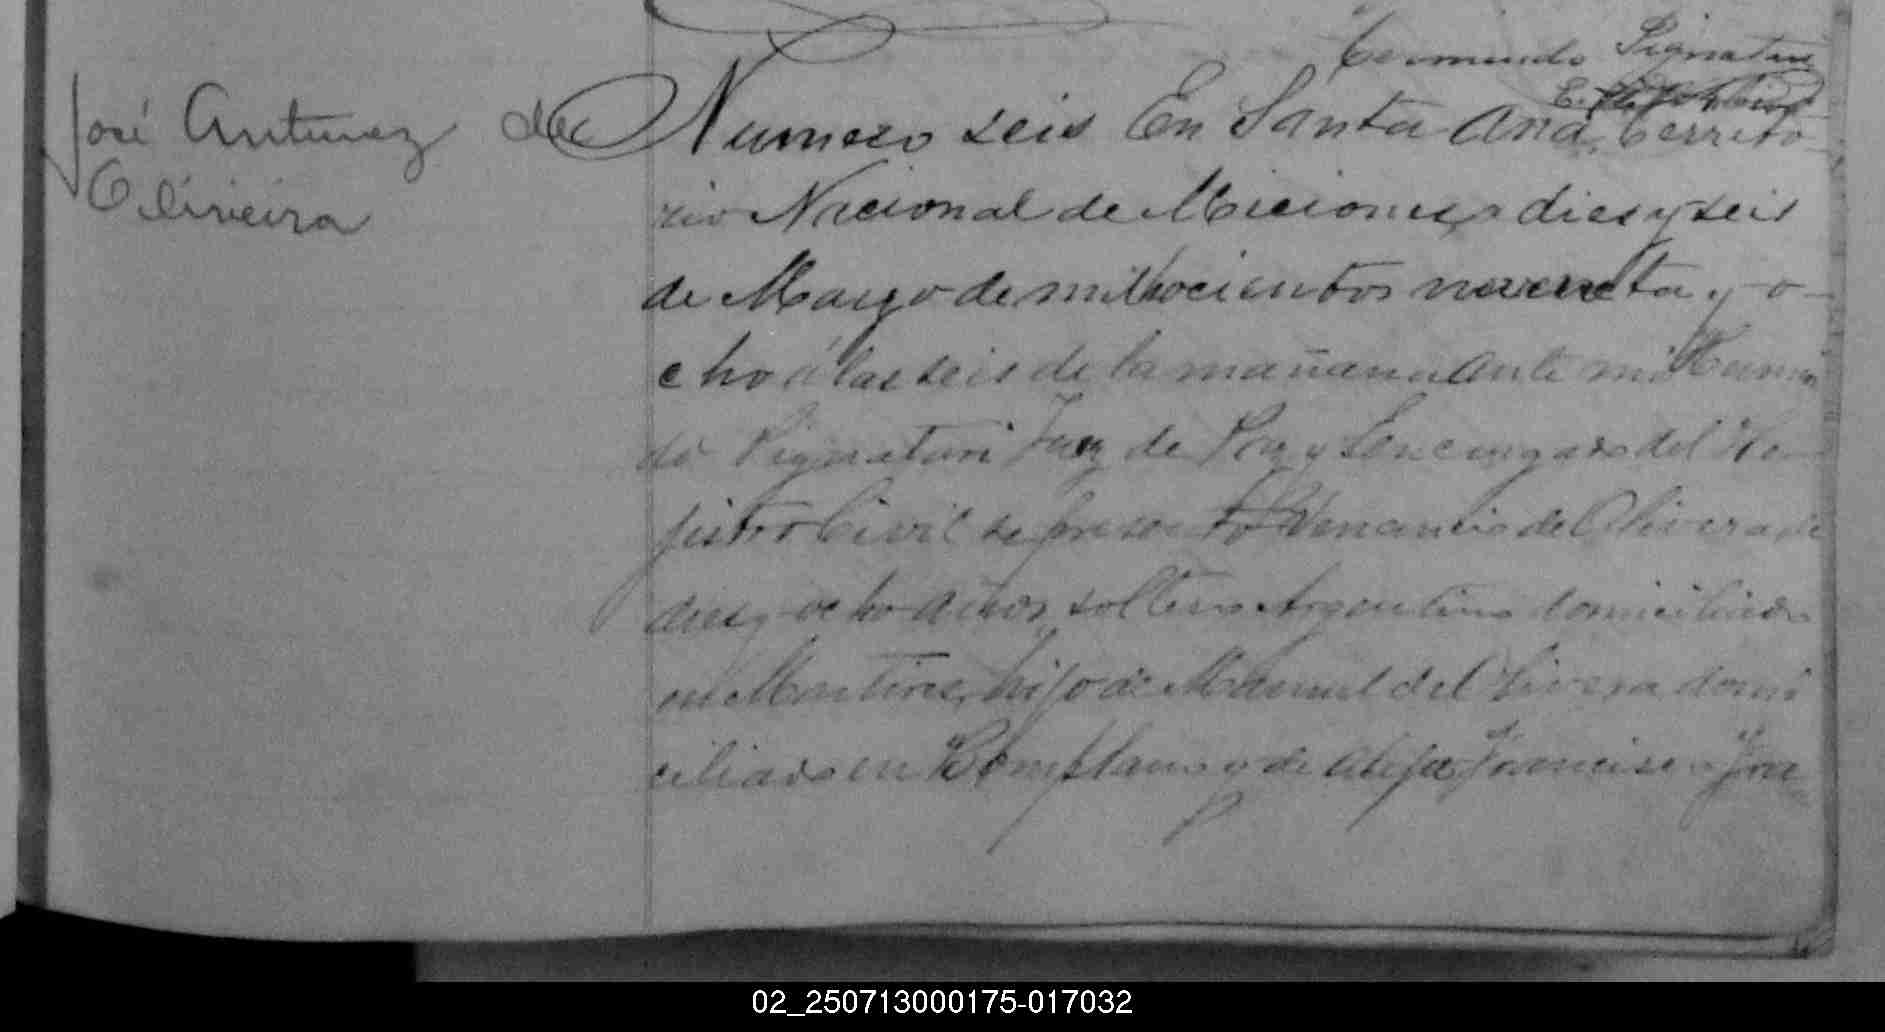 José Antunez de
Oliveira
Hermindo Pignatari
E.
Numero seis En Santa Ana, Territo-
rio Nacional de Miciones, a dies y seis
de Marzo de mil hocientos noventa y o-
cho á las seis de la mañana ante mi Hermin
do Pignatari Juez de Paz y Encargado del Re-
jistro Civil se presentó Venancio de Olivera de
dies y ocho años, soltero Argentino domiciliado
en Martires, hijo de Manuel de Olivera domi
ciliado en Bompland y de Francisca